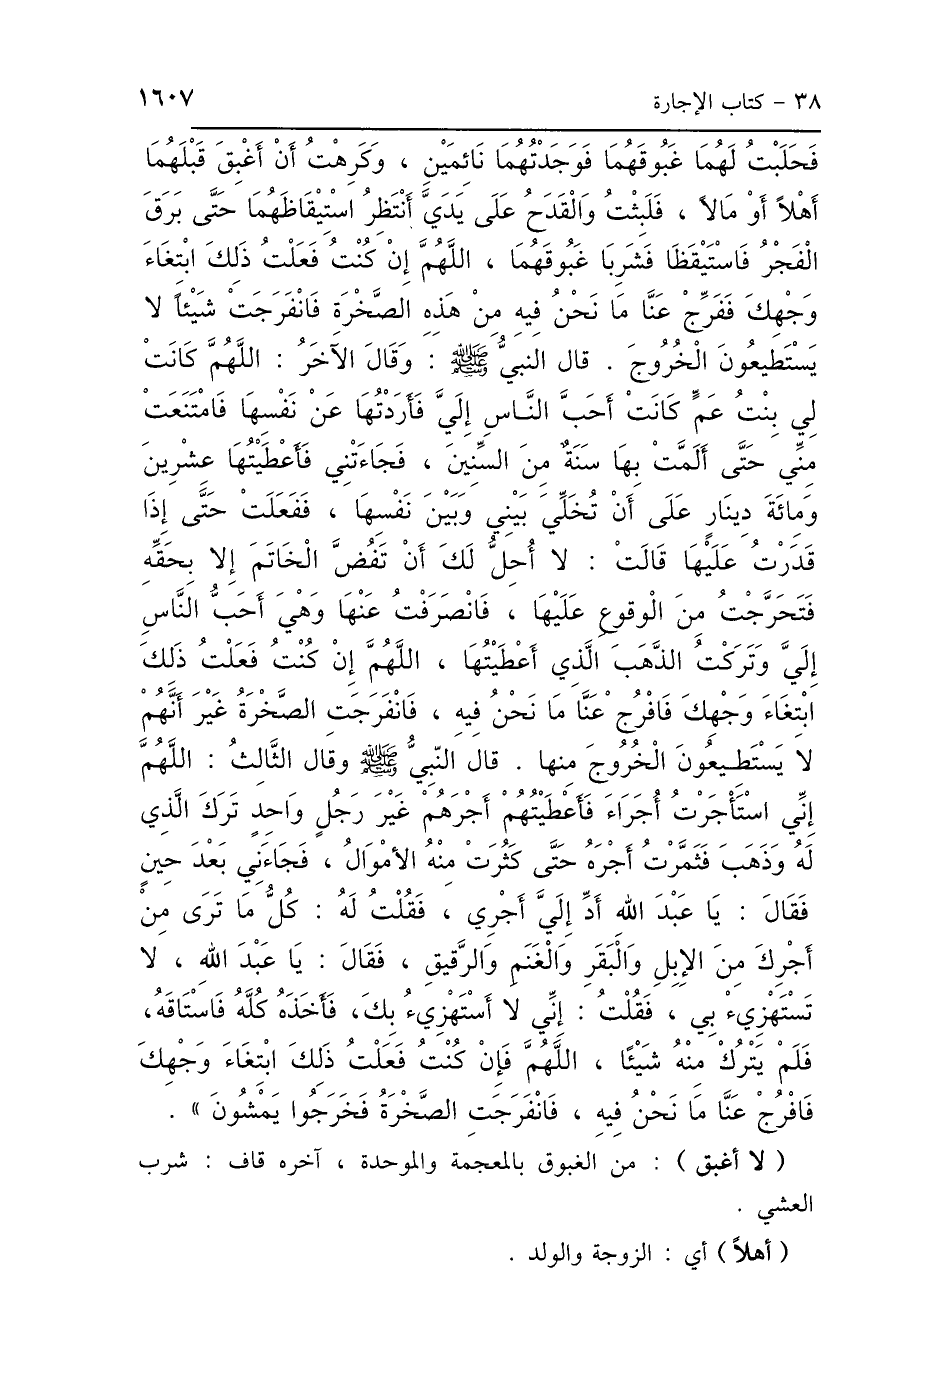 ٣٨ - كتاب الإجارة ١٦٠٧
فَحَلَبْتُ لَهُمَا غَبُوقَهُمَا فَوَجَدْتُهُمَا نَائِمَيْنِ ، وَكَرِهْتُ أَنْ أَغْبِقَ قَبْلَهُمَا
أَهْلاً أَوْ مَالاً ، فَلَبِثْتُ وَالْقَدَحُ عَلَى يَدَيَّ أَنْتَظِرُ اسْتِيْقَاظَهُمَا حَتَّى بَرَقَ
الْفَجْرُ فَاسْتَيْقَظَا فَشَرِبَا غَبُوقَهُمَا ، اللَّهُمَّ إِنْ كُنْتُ فَعَلْتُ ذَلِكَ ابْتِغَاءَ
وَجْهِكَ فَفَرِّجْ عَنَّا مَا نَحْنُ فِيهِ مِنْ هَذِهِ الصَّخْرَةِ فَانْفَرَجَتْ شَيْئاً لا
يَسْتَطِيعُونَ الْخُرُوجَ . قال النبيُّ ﷺ : وَقَالَ الآخَرُ : اللَّهُمَّ كَانَتْ
لِي بِنْتُ عَمٍّ كَانَتْ أَحَبَّ النَّاسِ إِلَيَّ فَأَرَدْتُهَا عَنْ نَفْسِهَا فَامْتَنَعَتْ
مِنِّي حَتَّى أَلَمَّتْ بِهَا سَنَةٌ مِنَ السِّنِينَ ، فَجَاءَتْنِي فَأَعْطَيْتُهَا عِشْرِينَ
وَمِائَةَ دِينَارٍ عَلَى أَنْ تُخَلِّيَ بَيْنِي وَبَيْنَ نَفْسِهَا ، فَفَعَلَتْ حَتَّى إِذَا
قَدَرْتُ عَلَيْهَا قَالَتْ : لا أُحِلُّ لَكَ أَنْ تَفُضَّ الْخَاتَمَ إِلا بِحَقِّهِ
فَتَحَرَّجْتُ مِنَ الْوقوعِ عَلَيْهَا ، فَانْصَرَفْتُ عَنْهَا وَهْيَ أَحَبُّ النَّاسِ
إِلَيَّ وَتَرَكْتُ الذَّهَبَ الَّذِي أَعْطَيْتُهَا ، اللَّهُمَّ إِنْ كُنْتُ فَعَلْتُ ذَلِكَ
ابْتِغَاءَ وَجْهِكَ فَافْرُجْ عَنَّا مَا نَحْنُ فِيهِ ، فَانْفَرَجَتِ الصَّخْرَةُ غَيْرَ أَنَّهُمْ
لا يَسْتَطِيعُونَ الْخُرُوجَ مِنها . قال النّبيُّ ﷺ وقال الثَّالثُ : اللَّهُمَّ
إِنِّي اسْتَأْجَرْتُ أُجَرَاءَ فَأَعْطَيْتُهُمْ أَجْرَهُمْ غَيْرَ رَجُلٍ وَاحِدٍ تَرَكَ الَّذِي
لَهُ وَذَهَبَ فَثَمَّرْتُ أَجْرَهُ حَتَّى كَثُرَتْ مِنْهُ الأَمْوَالُ ، فَجَاءَنِي بَعْدَ حِينٍ
فَقَالَ : يَا عَبْدَ الله أَدِّ إِلَيَّ أَجْرِي ، فَقُلْتُ لَهُ : كُلُّ مَا تَرَى مِنْ
أَجْرِكَ مِنَ الإِبِلِ وَالْبَقَرِ وَالْغَنَمِ وَالرَّقِيقِ ، فَقَالَ : يَا عَبْدَ اللهِ ، لا
تَسْتَهْزِيءْ بِي ، فَقُلْتُ : إِنِّي لا أَسْتَهْزِيءُ بِكَ، فَأَخَذَهُ كُلَّهُ فَاسْتَاقَهُ،
فَلَمْ يَتْرُكْ مِنْهُ شَيْئًا ، اللَّهُمَّ فَإِنْ كُنْتُ فَعَلْتُ ذَلِكَ ابْتِغَاءَ وَجْهِكَ
فَافْرُجْ عَنَّا مَا نَحْنُ فِيهِ ، فَانْفَرَجَتِ الصَّخْرَةُ فَخَرَجُوا يَمْشُونَ » .
( لا أغبق ) : من الغبوق بالمعجمة والموحدة ، آخره قاف : شرب
العشي .
( أهلاً ) أي : الزوجة والولد .